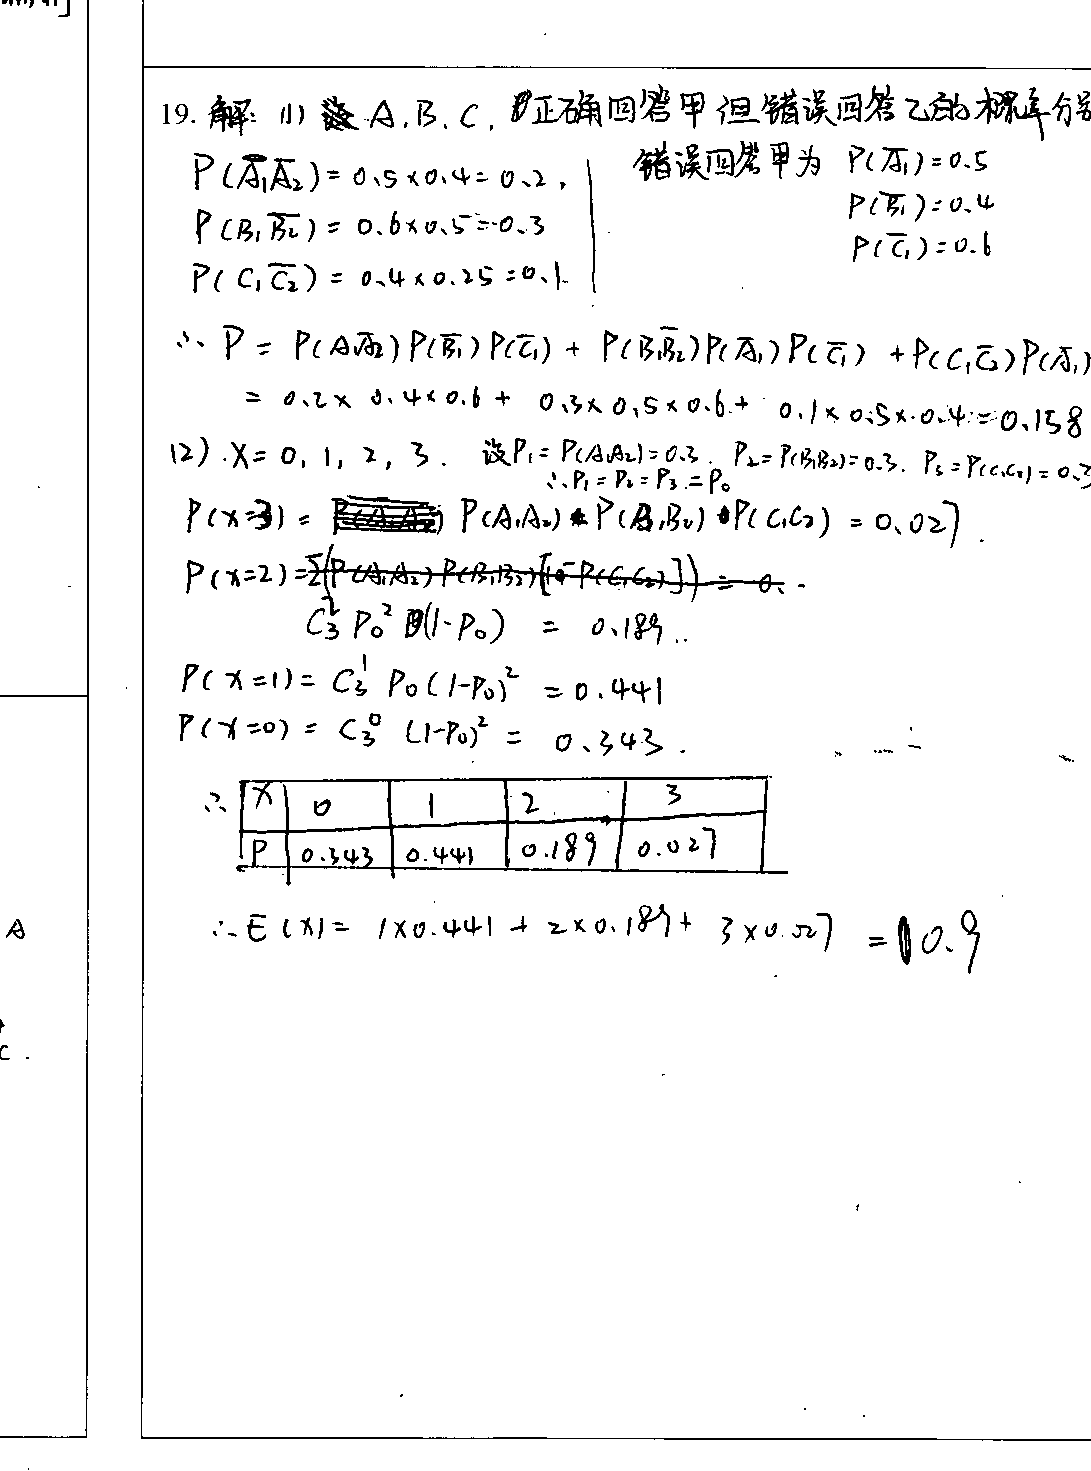 19. 解: (1) 设 A, B, C, 正确回答甲但错误回答乙的概率分别
P(A̅₁A̅₂) = 0.5×0.4 = 0.2,
错误回答甲为 P(A̅₁)=0.5
P(B₁B̅₂) = 0.6×0.5 = 0.3
P(B̅₁)=0.4
P(C₁C̅₂) = 0.4×0.25 = 0.1
P(C̅₁)=0.6
∴ P = P(A₁A̅₂)P(B̅₁)P(C̅₁) + P(B₁B̅₂)P(A̅₁)P(C̅₁) + P(C₁C̅₂)P(A̅₁)
= 0.2×0.4×0.6 + 0.3×0.5×0.6 + 0.1×0.5×0.4 = 0.158
(2). X = 0, 1, 2, 3. 设P₁=P(A₁A₂)=0.3. P₂=P(B₁B₂)=0.3. P₃=P(C₁C₂)=0.3
∴P₁=P₂=P₃=P₀
P(X=3) = P(A₁A₂)•P(B₁B₂)•P(C₁C₂) = 0.027.
P(X=2) =
C₃² P₀² (1-P₀) = 0.189..
P(X=1) = C₃¹ P₀(1-P₀)² = 0.441
P(X=0) = C₃⁰ (1-P₀)² = 0.343.
∴ X 0 1 2 3
P 0.343 0.441 0.189 0.027
∴E(X) = 1×0.441 + 2×0.189 + 3×0.027 = 0.9
A
C.